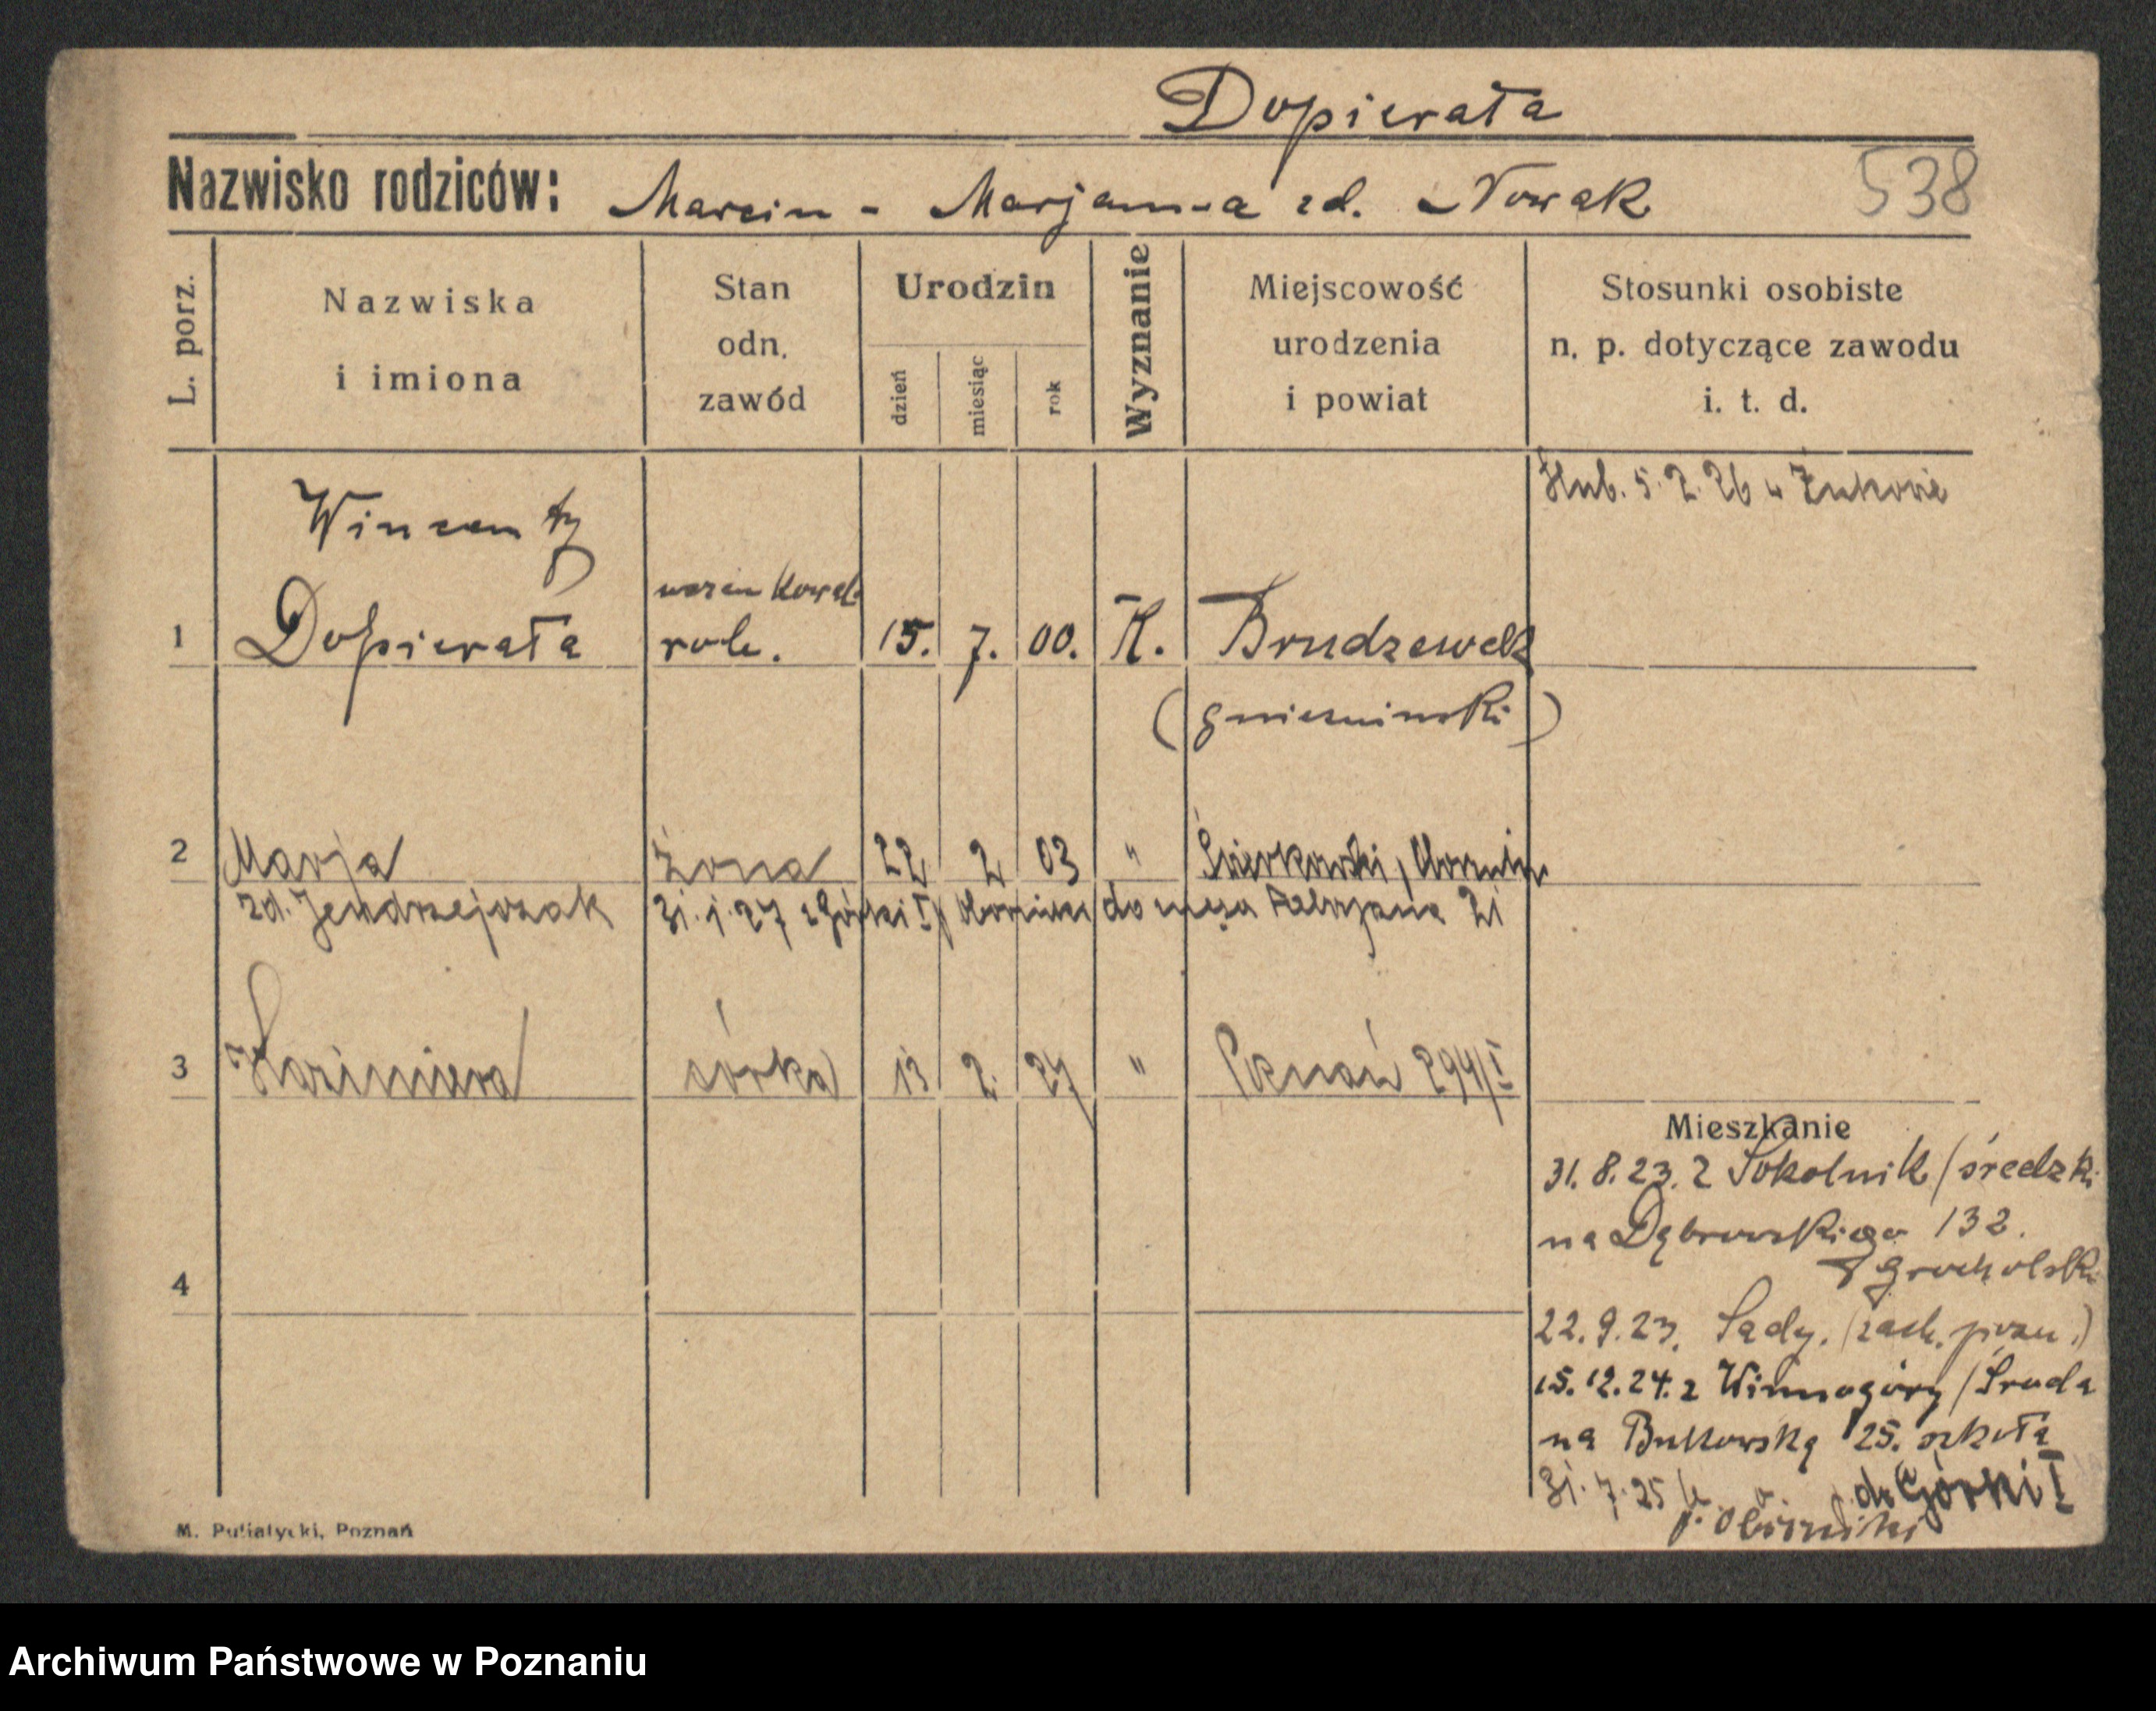 Dopierała
Nazwisko rodziców: Marcin - Marjanna zd. Nowak 538
L. porz.
Nazwiska
i imiona
Stan
odn.
zawód
Urodzin
dzień
miesiąc
rok
Wyznanie
Miejscowość
urodzenia
i powiat
Stosunki osobiste
n. p. dotyczące zawodu
i. t. d.
5. 2. 26 w Żukowie
Wincenty
uczeń kowal.
1 Dopierała role. 15. 7. 00. K. Brudzewek
(gniezninski)
2 Marja żona 22 2 03 "
zd. Jendrzejczak 31. 1. 27 z Górki I do męża 21
3 Kazimiera córka 13 2. 27 " Poznań 294/I
Mieszkanie
31. 8. 23. z Sokolnik /średzki
na Dąbrowskiego 132.
Grocholski
4
22. 9. 23. Sady. (zach. pozn.)
15. 12. 24. z Winnogóry /Sroda
na Bukowską 25. szkoła
31. 7. 25 do Górki I
p. Oborniki
M. Putiatycki, Poznań
Archiwum Państwowe w Poznaniu